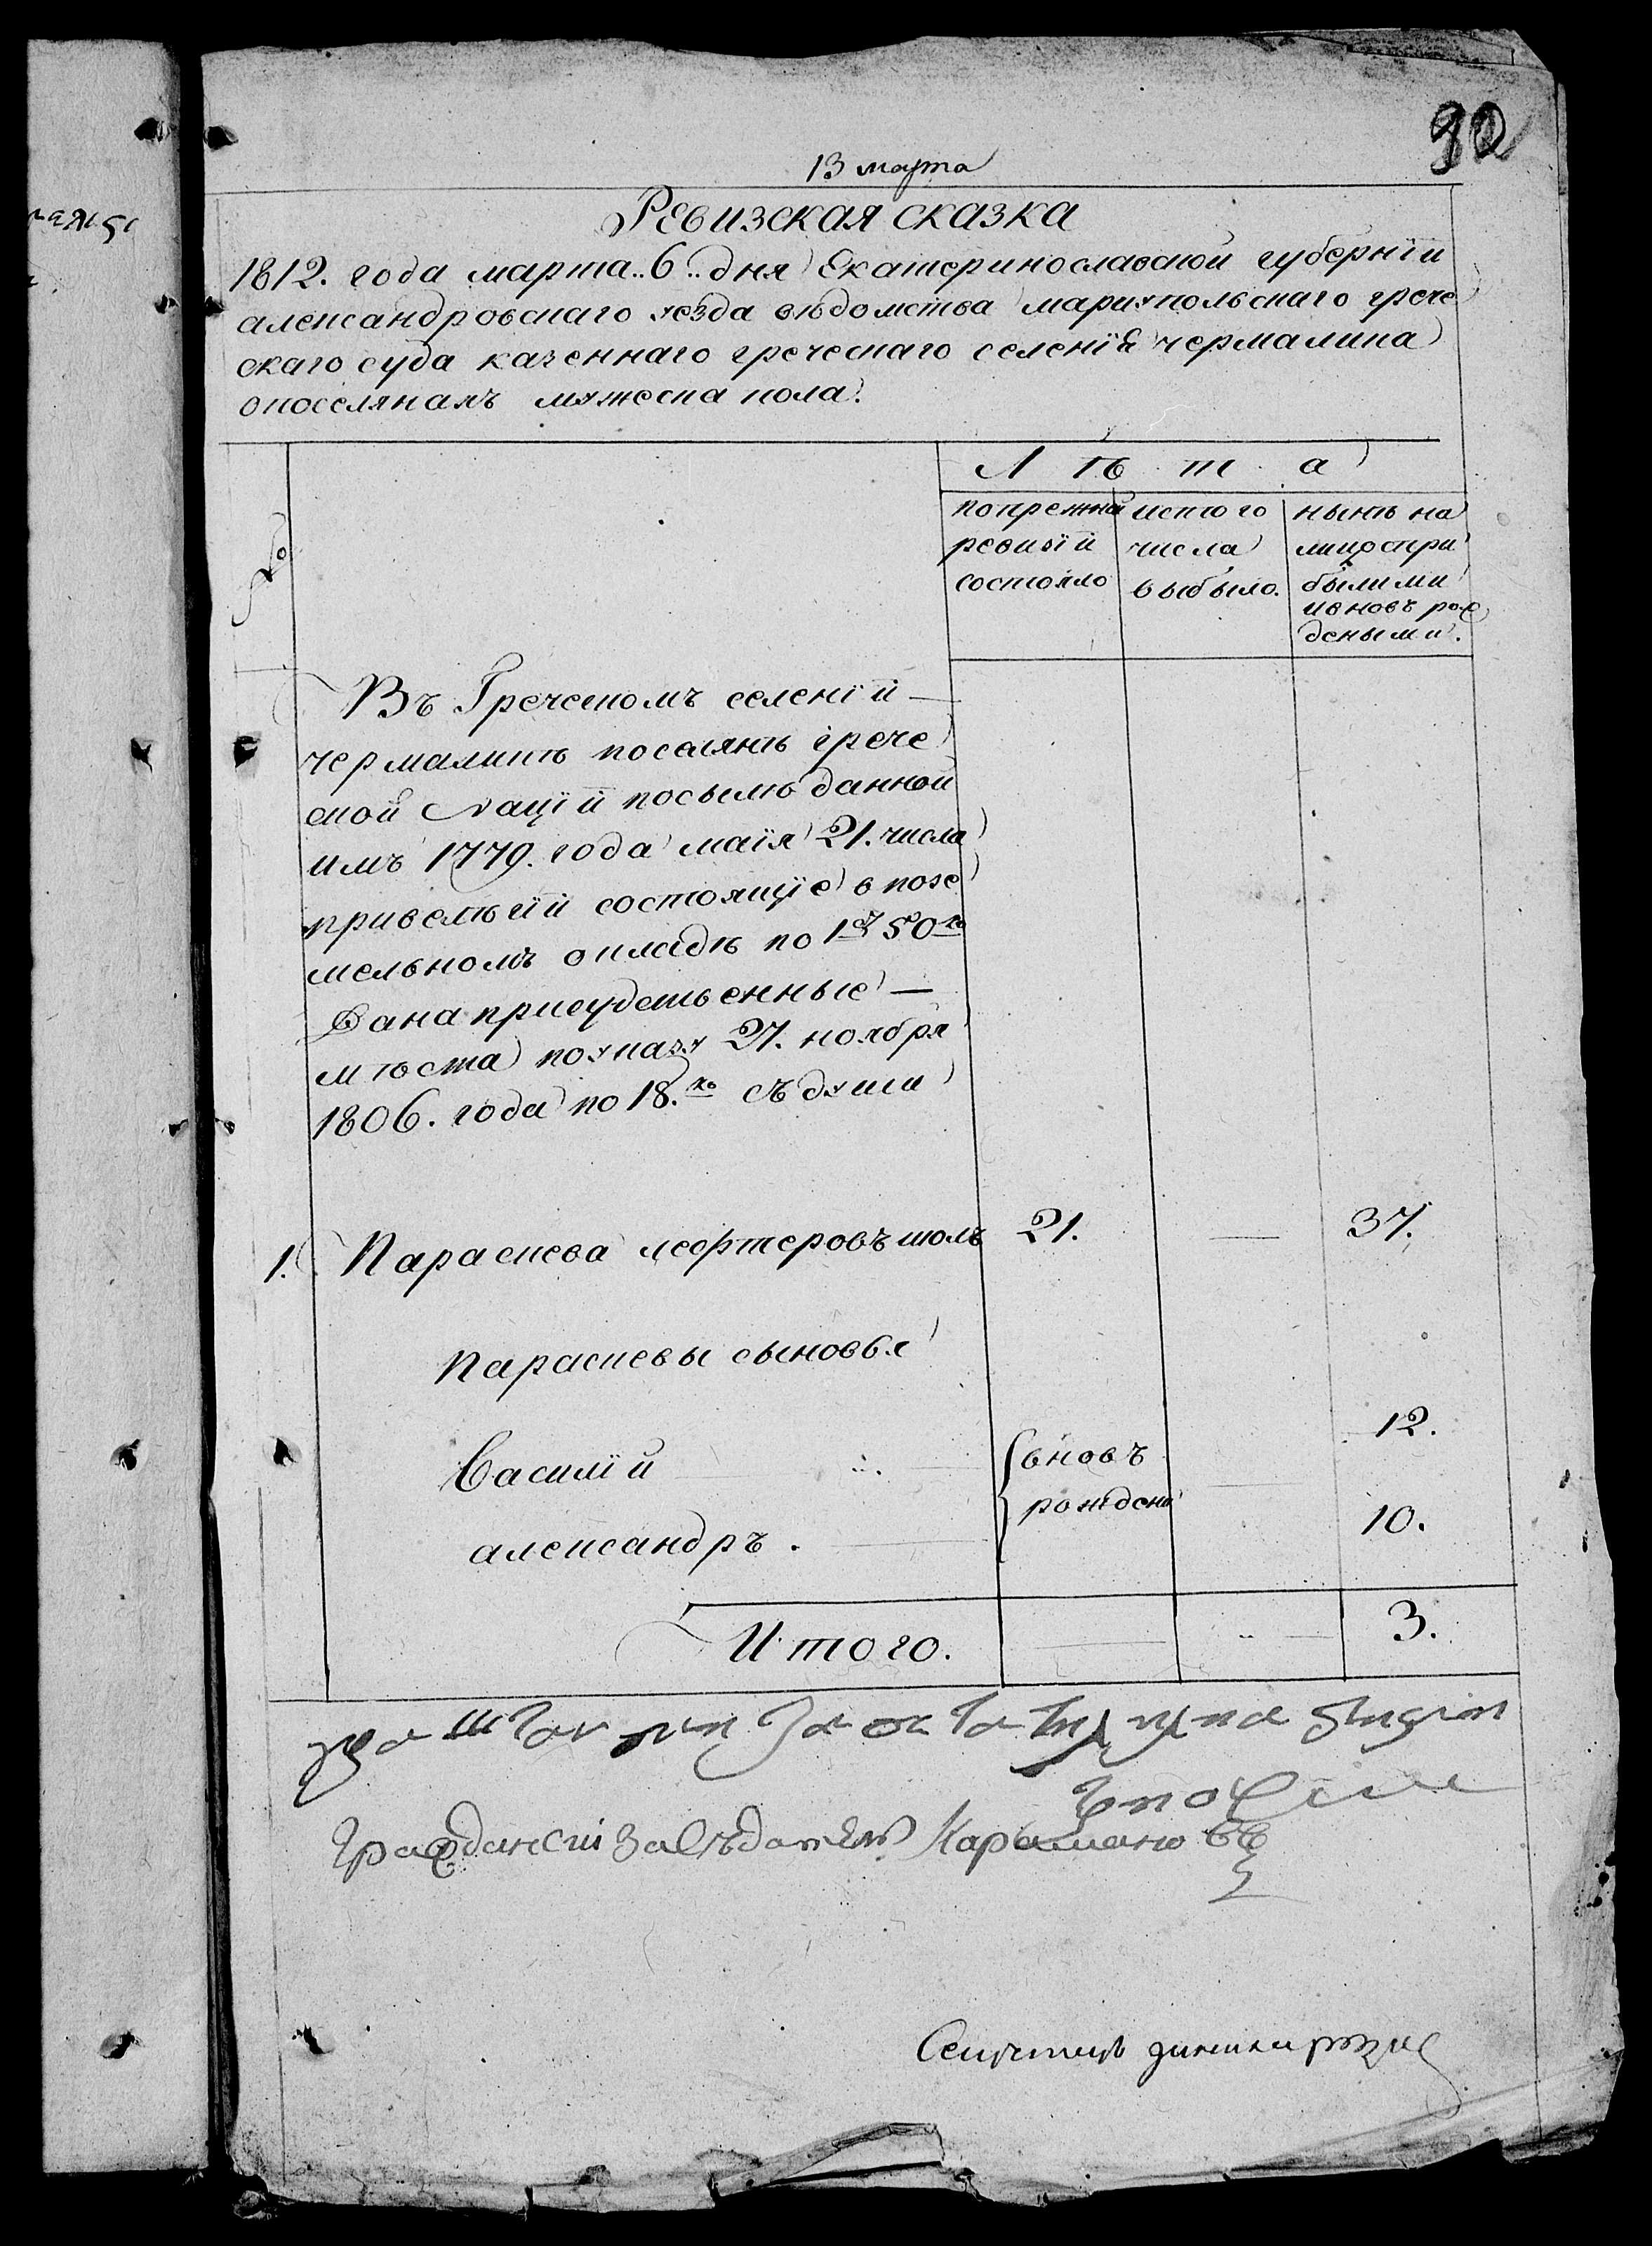 90
13 марта
Ревизская сказка
1812. года марта 6 дня Екатеринославской губернїи
александровскаго уезда вѣдомства мариупольскаго грече
скаго суда казеннаго греческаго селенїя чермалика
о поселянахъ мужеска пола.
№
Лѣта
по прежней ревизїи состояло
ис того числа выбыло.
нынѣ на лицо с при былыми и вновъ рож деными.
Въ Греческомъ селенїй
чермаликѣ поселянѣ грече
ской нацїй по силѣ данной
имъ 1779. года маїя 21. числа
привелѣгїй состоящїе в позе
мельномъ окладѣ по 1 р 50 ко
Да на присудственные
мѣста по указу 27. ноября
1806. года по 18. ко съ душа
1. Параскева лефтеровъ 21. 37.
Параскевы сыновье
Василїй вновъ 12.
александръ. рождены 10.
Итого. 3.
Гражданскі Заседатель Карамановъ